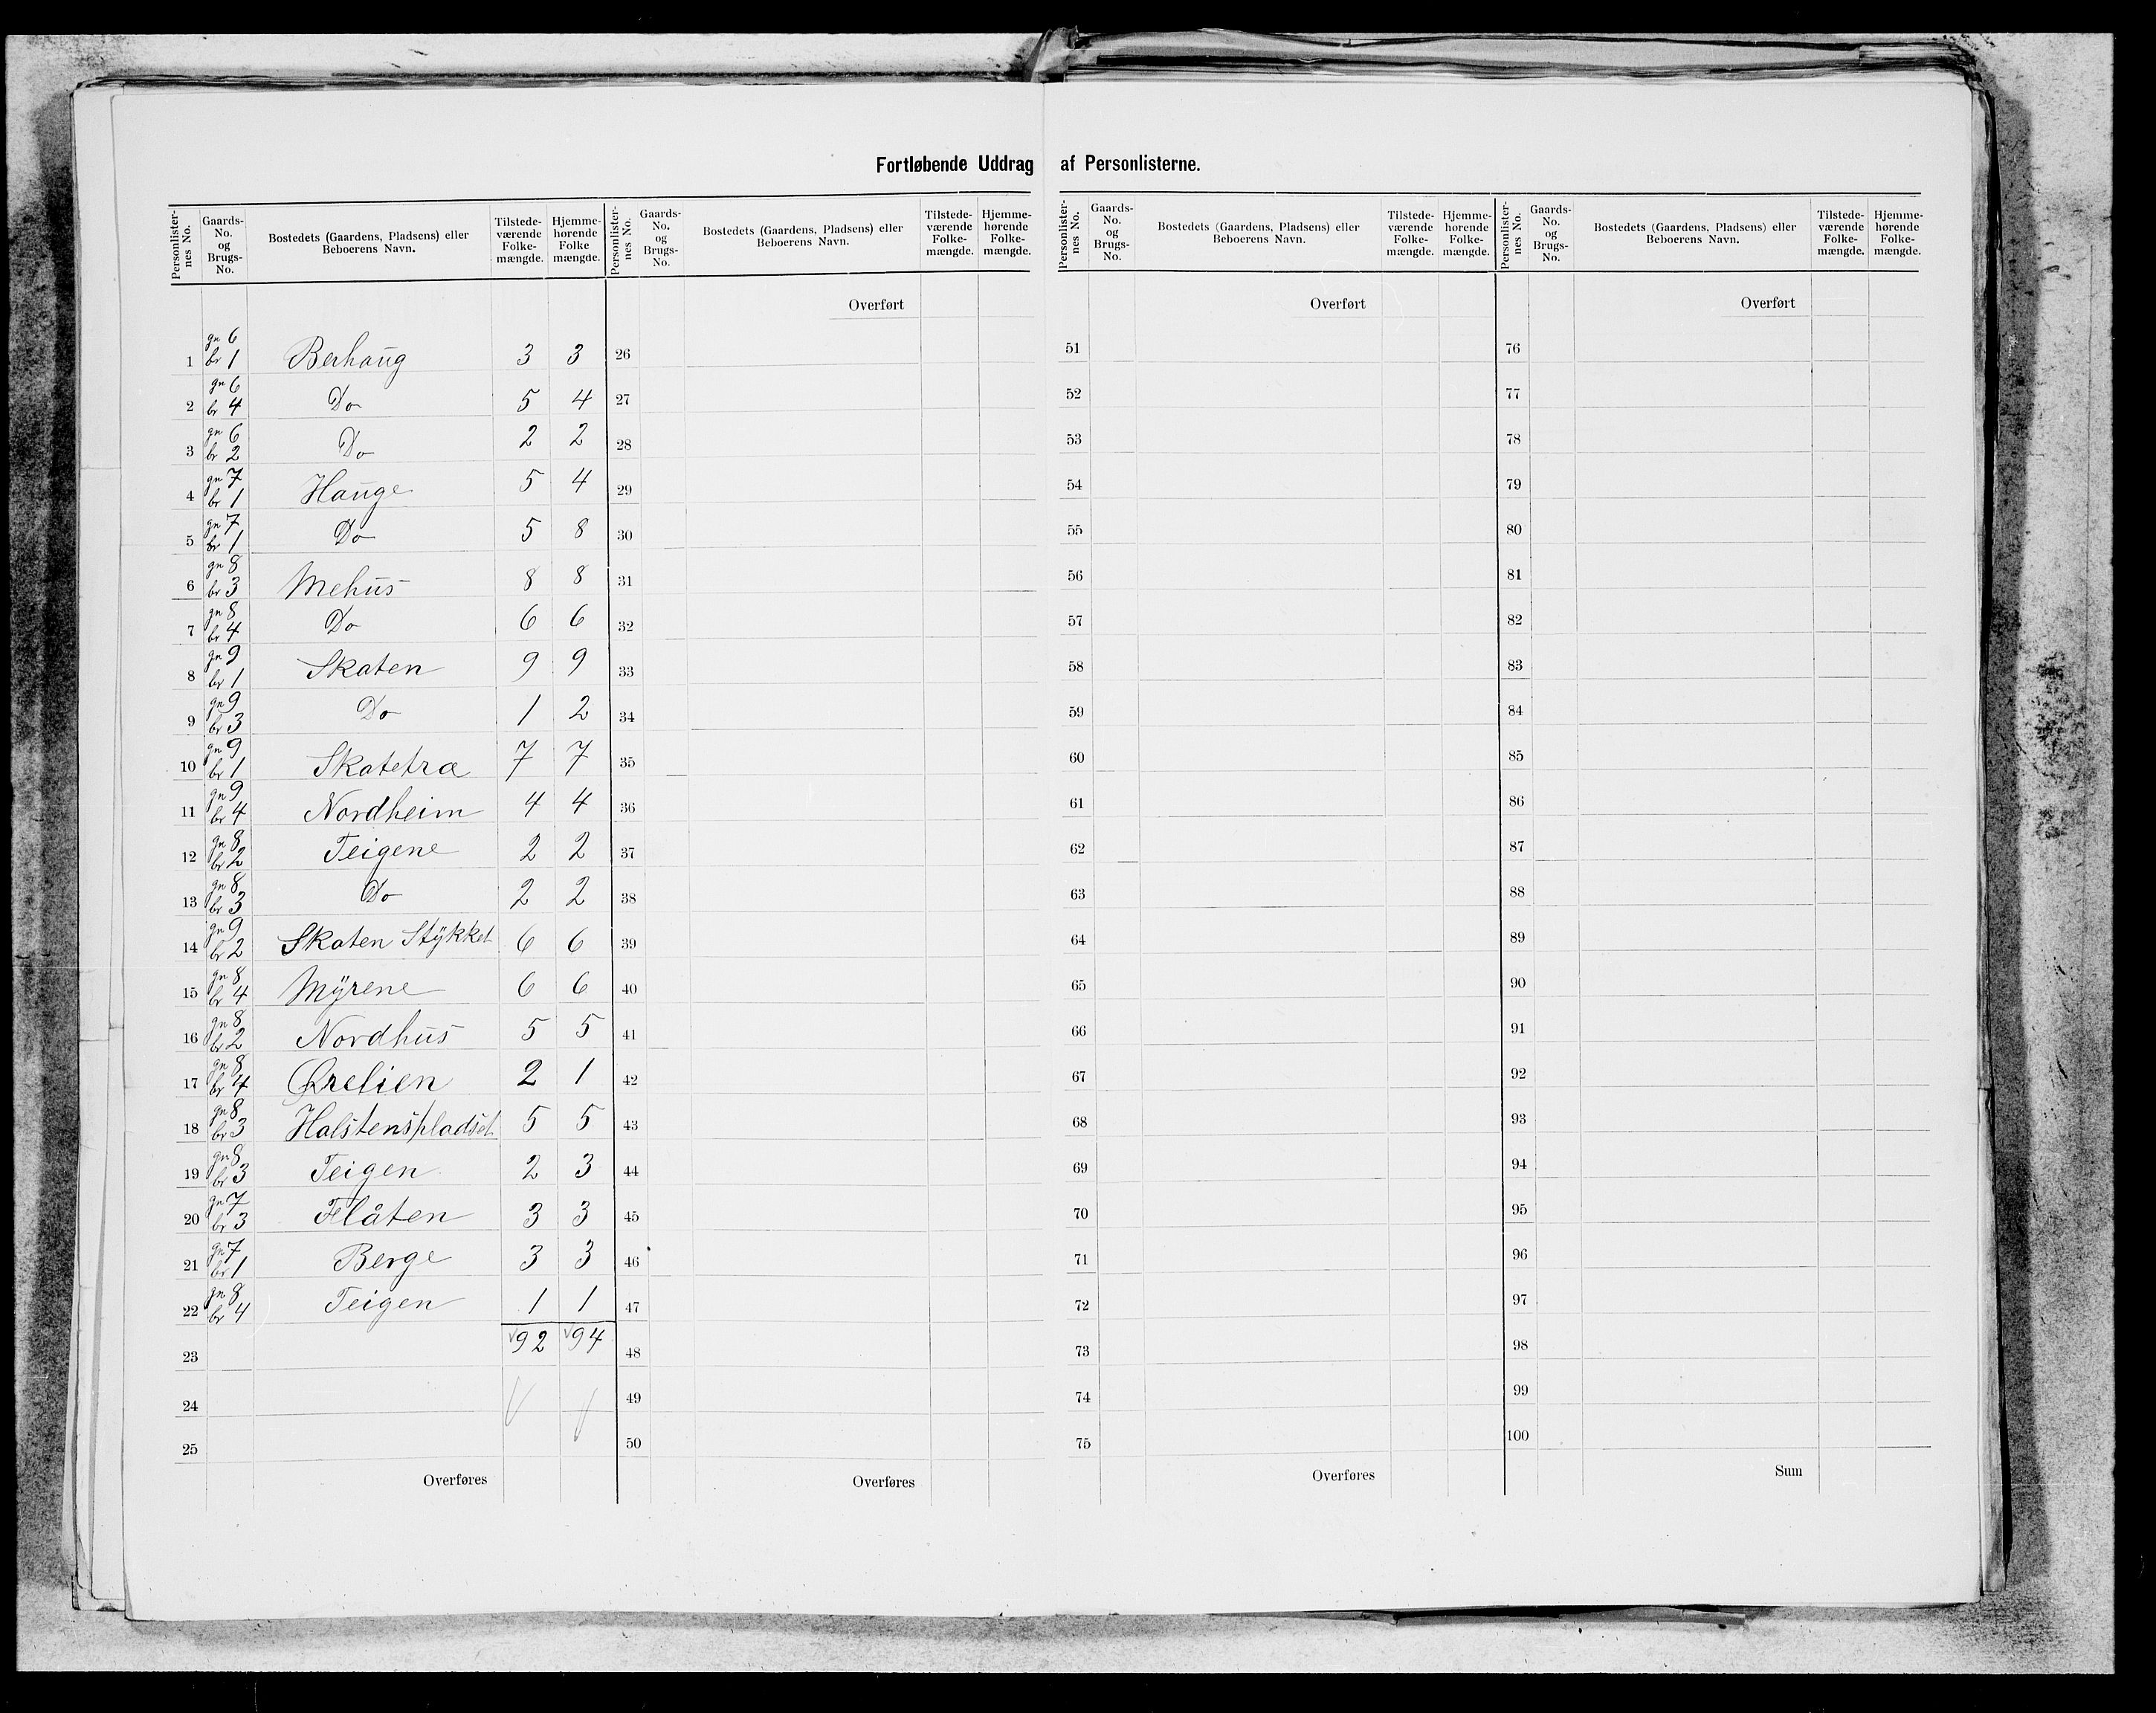 Fortløbende Uddrag af Personlisterne.
Personlister-nes No. | Gaards-No. og Brugs-No. | Bostedets (Gaardens, Pladsens) eller Beboerens Navn. | Tilstede-værende Folke-mængde. | Hjemme-hørende Folke mængde.
1 gn 6 br 1 Berhaug 3 3
2 gn 6 br 4 Do 5 4
3 gn 6 br 2 Do 2 2
4 gn 7 br 1 Hauge 5 4
5 gn 7 br 1 Do 5 8
6 gn 8 br 3 Mehus 8 8
7 gn 8 br 4 Do 6 6
8 gn 9 br 1 Skaten 9 9
9 gn 9 br 3 Do 1 2
10 gn 9 br 1 Skatetræ 7 7
11 gn 9 br 4 Nordheim 4 4
12 gn 8 br 2 Teigene 2 2
13 gn 8 br 3 Do 2 2
14 gn 9 br 2 Skaten Stykket 6 6
15 gn 8 br 4 Myrene 6 6
16 gn 8 br 2 Nordhus 5 5
17 gn 8 br 4 Ørelien 2 1
18 gn 8 br 3 Halstenspladset 5 5
19 gn 8 br 3 Teigen 2 3
20 gn 7 br 3 Flåten 3 3
21 gn 7 br 1 Berge 3 3
22 gn 8 br 4 Teigen 1 1
23 √92 √94
24
25
Overføres
Personlister-nes No. | Gaards-No. og Brugs-No. | Bostedets (Gaardens, Pladsens) eller Beboerens Navn. | Tilstede-værende Folke-mængde. | Hjemme-hørende Folke-mængde.
Overført
26
27
28
29
30
31
32
33
34
35
36
37
38
39
40
41
42
43
44
45
46
47
48
49
50
Overføres
Personlister-nes No. | Gaards-No. og Brugs-No. | Bostedets (Gaardens, Pladsens) eller Beboerens Navn. | Tilstede-værende Folke-mængde. | Hjemme-hørende Folke-mængde.
Overført
51
52
53
54
55
56
57
58
59
60
61
62
63
64
65
66
67
68
69
70
71
72
73
74
75
Overføres
Personlister-nes No. | Gaards-No. og Brugs-No. | Bostedets (Gaardens, Pladsens) eller Beboerens Navn. | Tilstede-værende Folke-mængde. | Hjemme-hørende Folke-mængde.
Overført
76
77
78
79
80
81
82
83
84
85
86
87
88
89
90
91
92
93
94
95
96
97
98
99
100
Sum